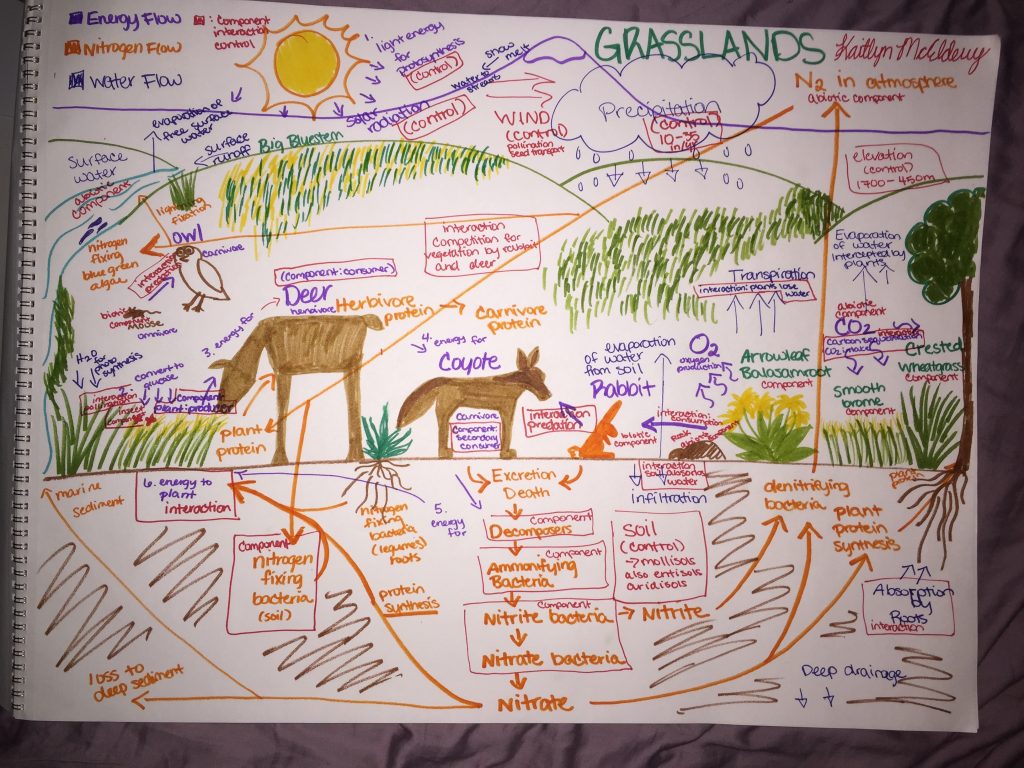 Energy Flow
Nitrogen Flow
Water Flow
: Component
interaction
control
1.
light energy
for
photosynthesis
(control)
solar
radiation
(control)
snow
melt
water to
streams
GRASSLANDS
WIND
(control)
pollination
seed transport
Precipitation
(control)
10-35
in/yr
N2 in atmosphere
abiotic component
elevation
(control)
1700-450m
evaporation of
free surface
water
surface
runoff
Surface
water
abiotic
component
Big Bluestem
fixation
nitrogen
fixing
blue green
algae
owl
carnivore
mouse
omnivore
interaction
Competition for
vegetation by rabbit
and deer
(component: consumer)
Deer
herbivore
3. energy for
Herbivore
protein
Carnivore
protein
4. energy for
Coyote
Carnivore
Component:
secondary
consumer
evaporation
of water
from soil
Rabbit
interaction
predation
biotic
component
interaction:
consumption
O2
oxygen
production
Transpiration
interaction: plants lose
water
Evaporation
of water
intercepted by
plants
abiotic
component
CO2
Arrowleaf
Balsamroot
component
Smooth
brome
component
Crested
wheatgrass
component
H2O for
photosynthesis
convert to
glucose
component
plant: producer
plant
protein
marine
sediment
6. energy to
plant
interaction
Component
nitrogen
fixing
bacteria
(soil)
nitrogen
fixing
bacteria
(legumes)
roots
5.
energy
for
Excretion
Death
Component
Decomposers
Component
Ammonifying
Bacteria
Component
Nitrite bacteria
Nitrite
Nitrate bacteria
Nitrate
protein
synthesis
soil
(control)
mollisols
also entisols
aridisols
interaction
soil absorbs
water
Infiltration
denitrifying
bacteria
plant
protein
synthesis
Absorption
by
Roots
interaction
Deep drainage
loss to
deep sediment